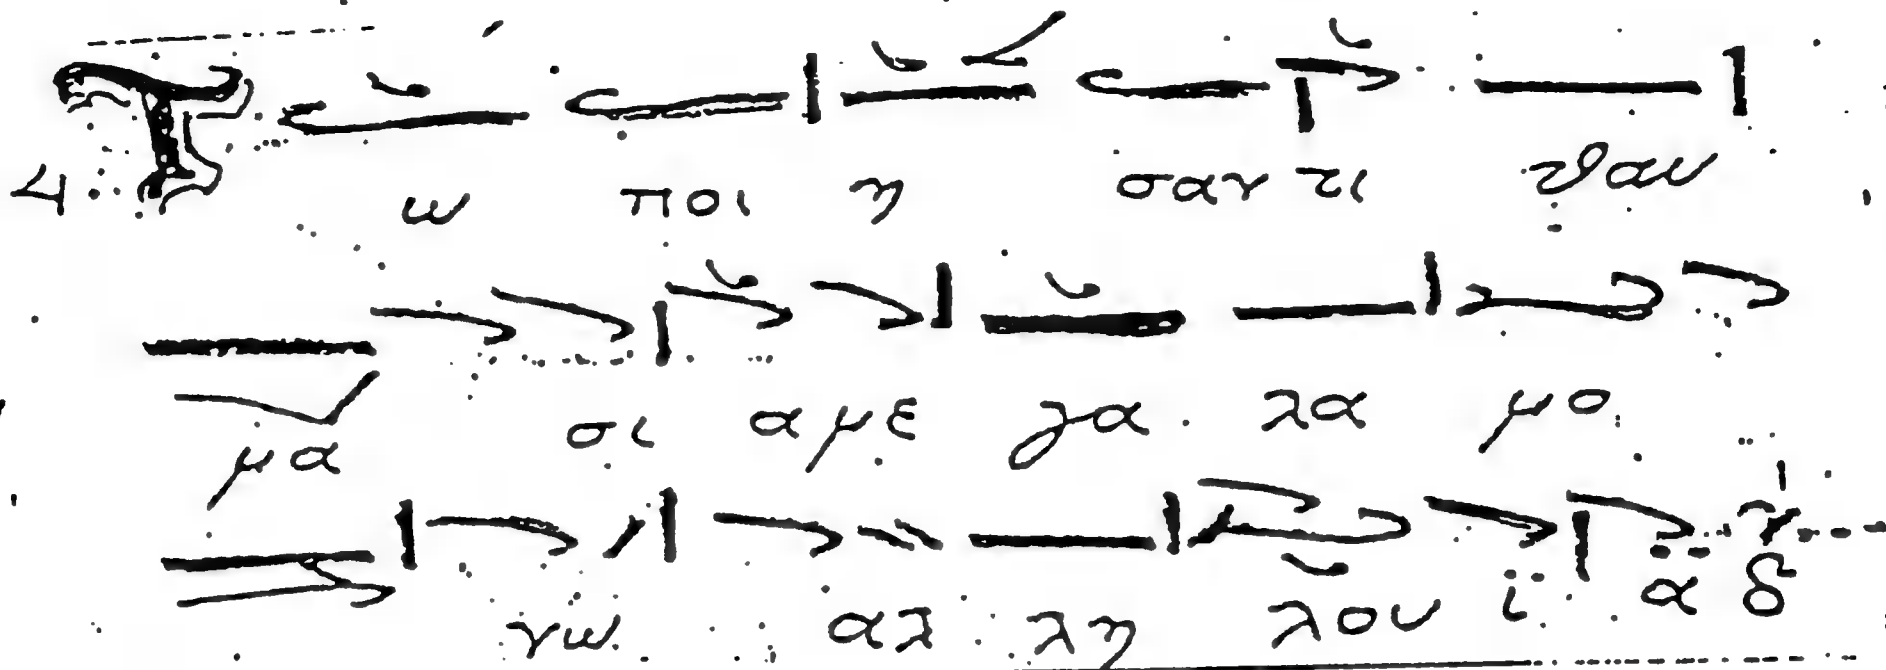 4 Τω ποι η σαν τι θαυ
μα σι α με γα λα μο
νω αλ λη λου ϊ α δ